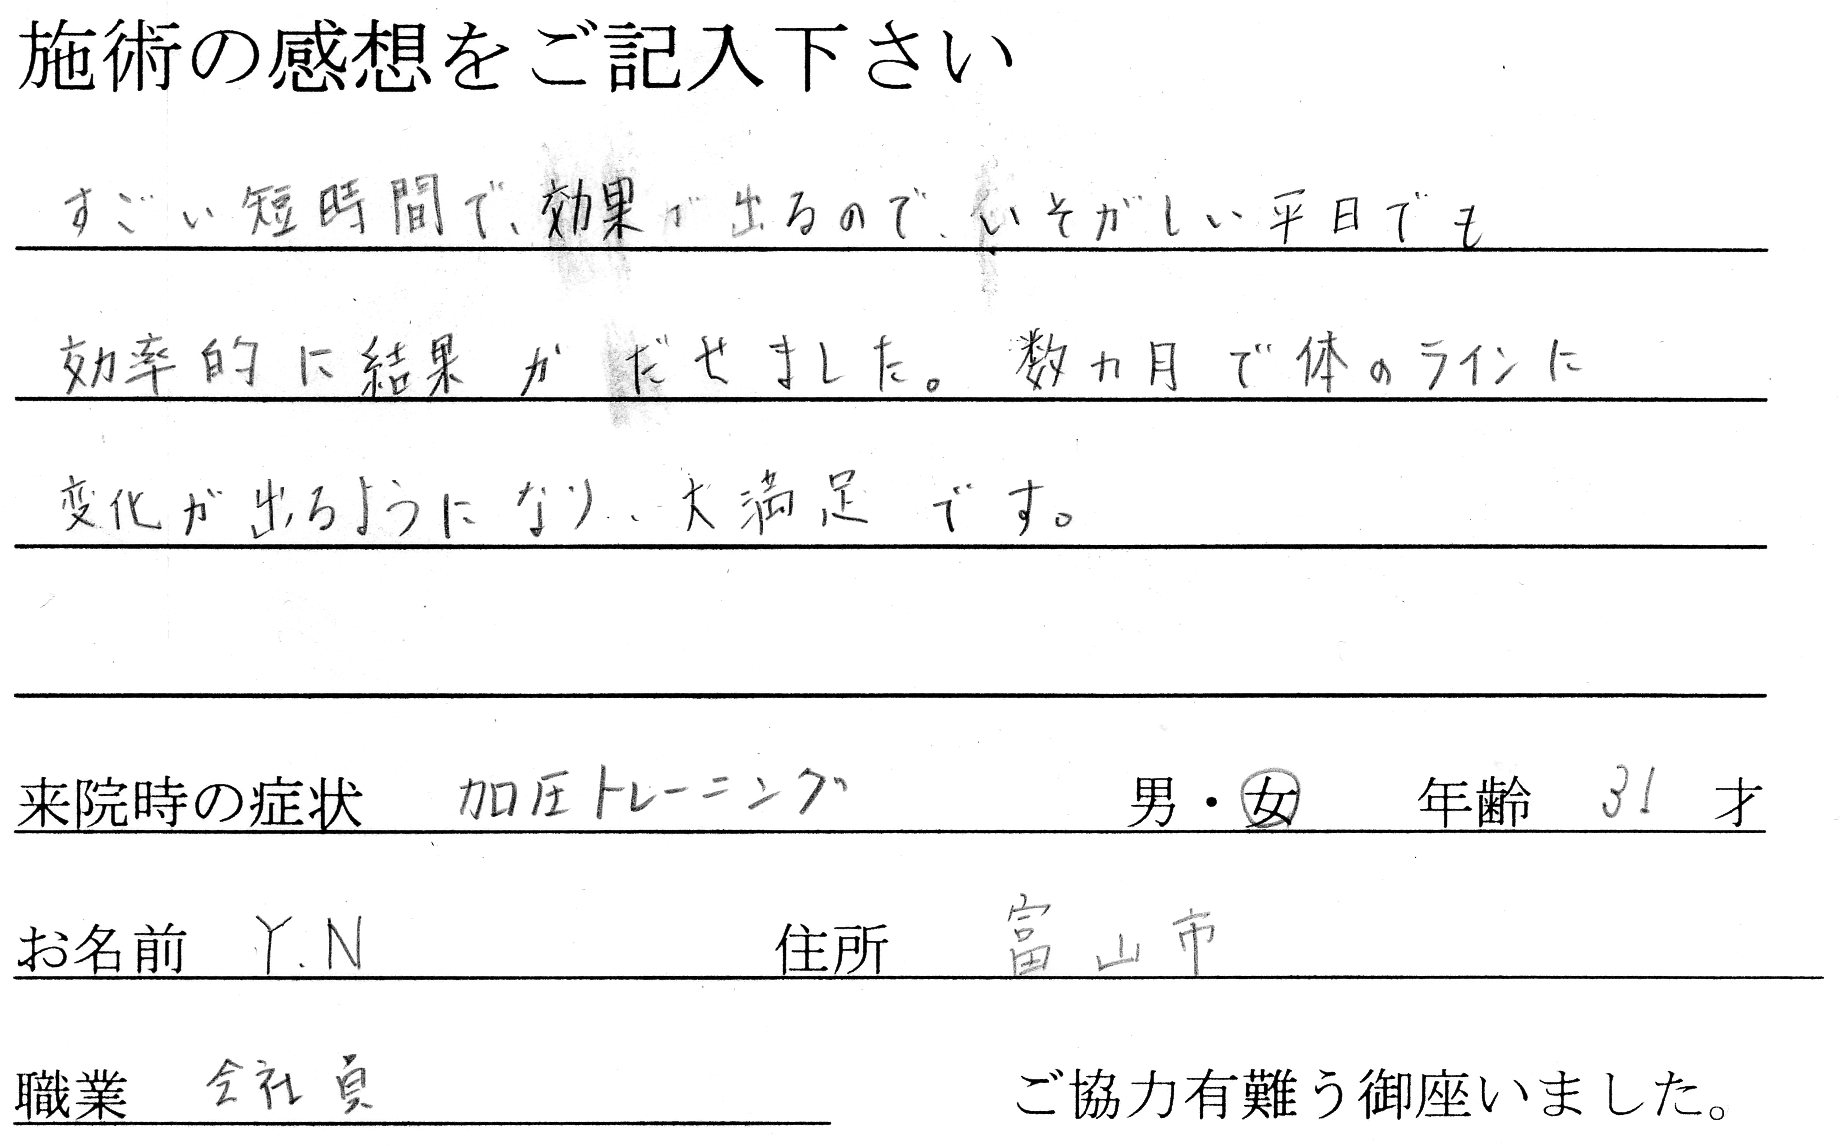 施術の感想をご記入下さい
すごい短時間で、効果が出るので、いそがしい平日でも
効率的に結果がだせました。数カ月で体のラインに
変化が出るようになり、大満足です。
来院時の症状 加圧トレーニング 男・女 年齢 31 才
お名前 Y.N 住所 富山市
職業 会社員 ご協力有難う御座いました。